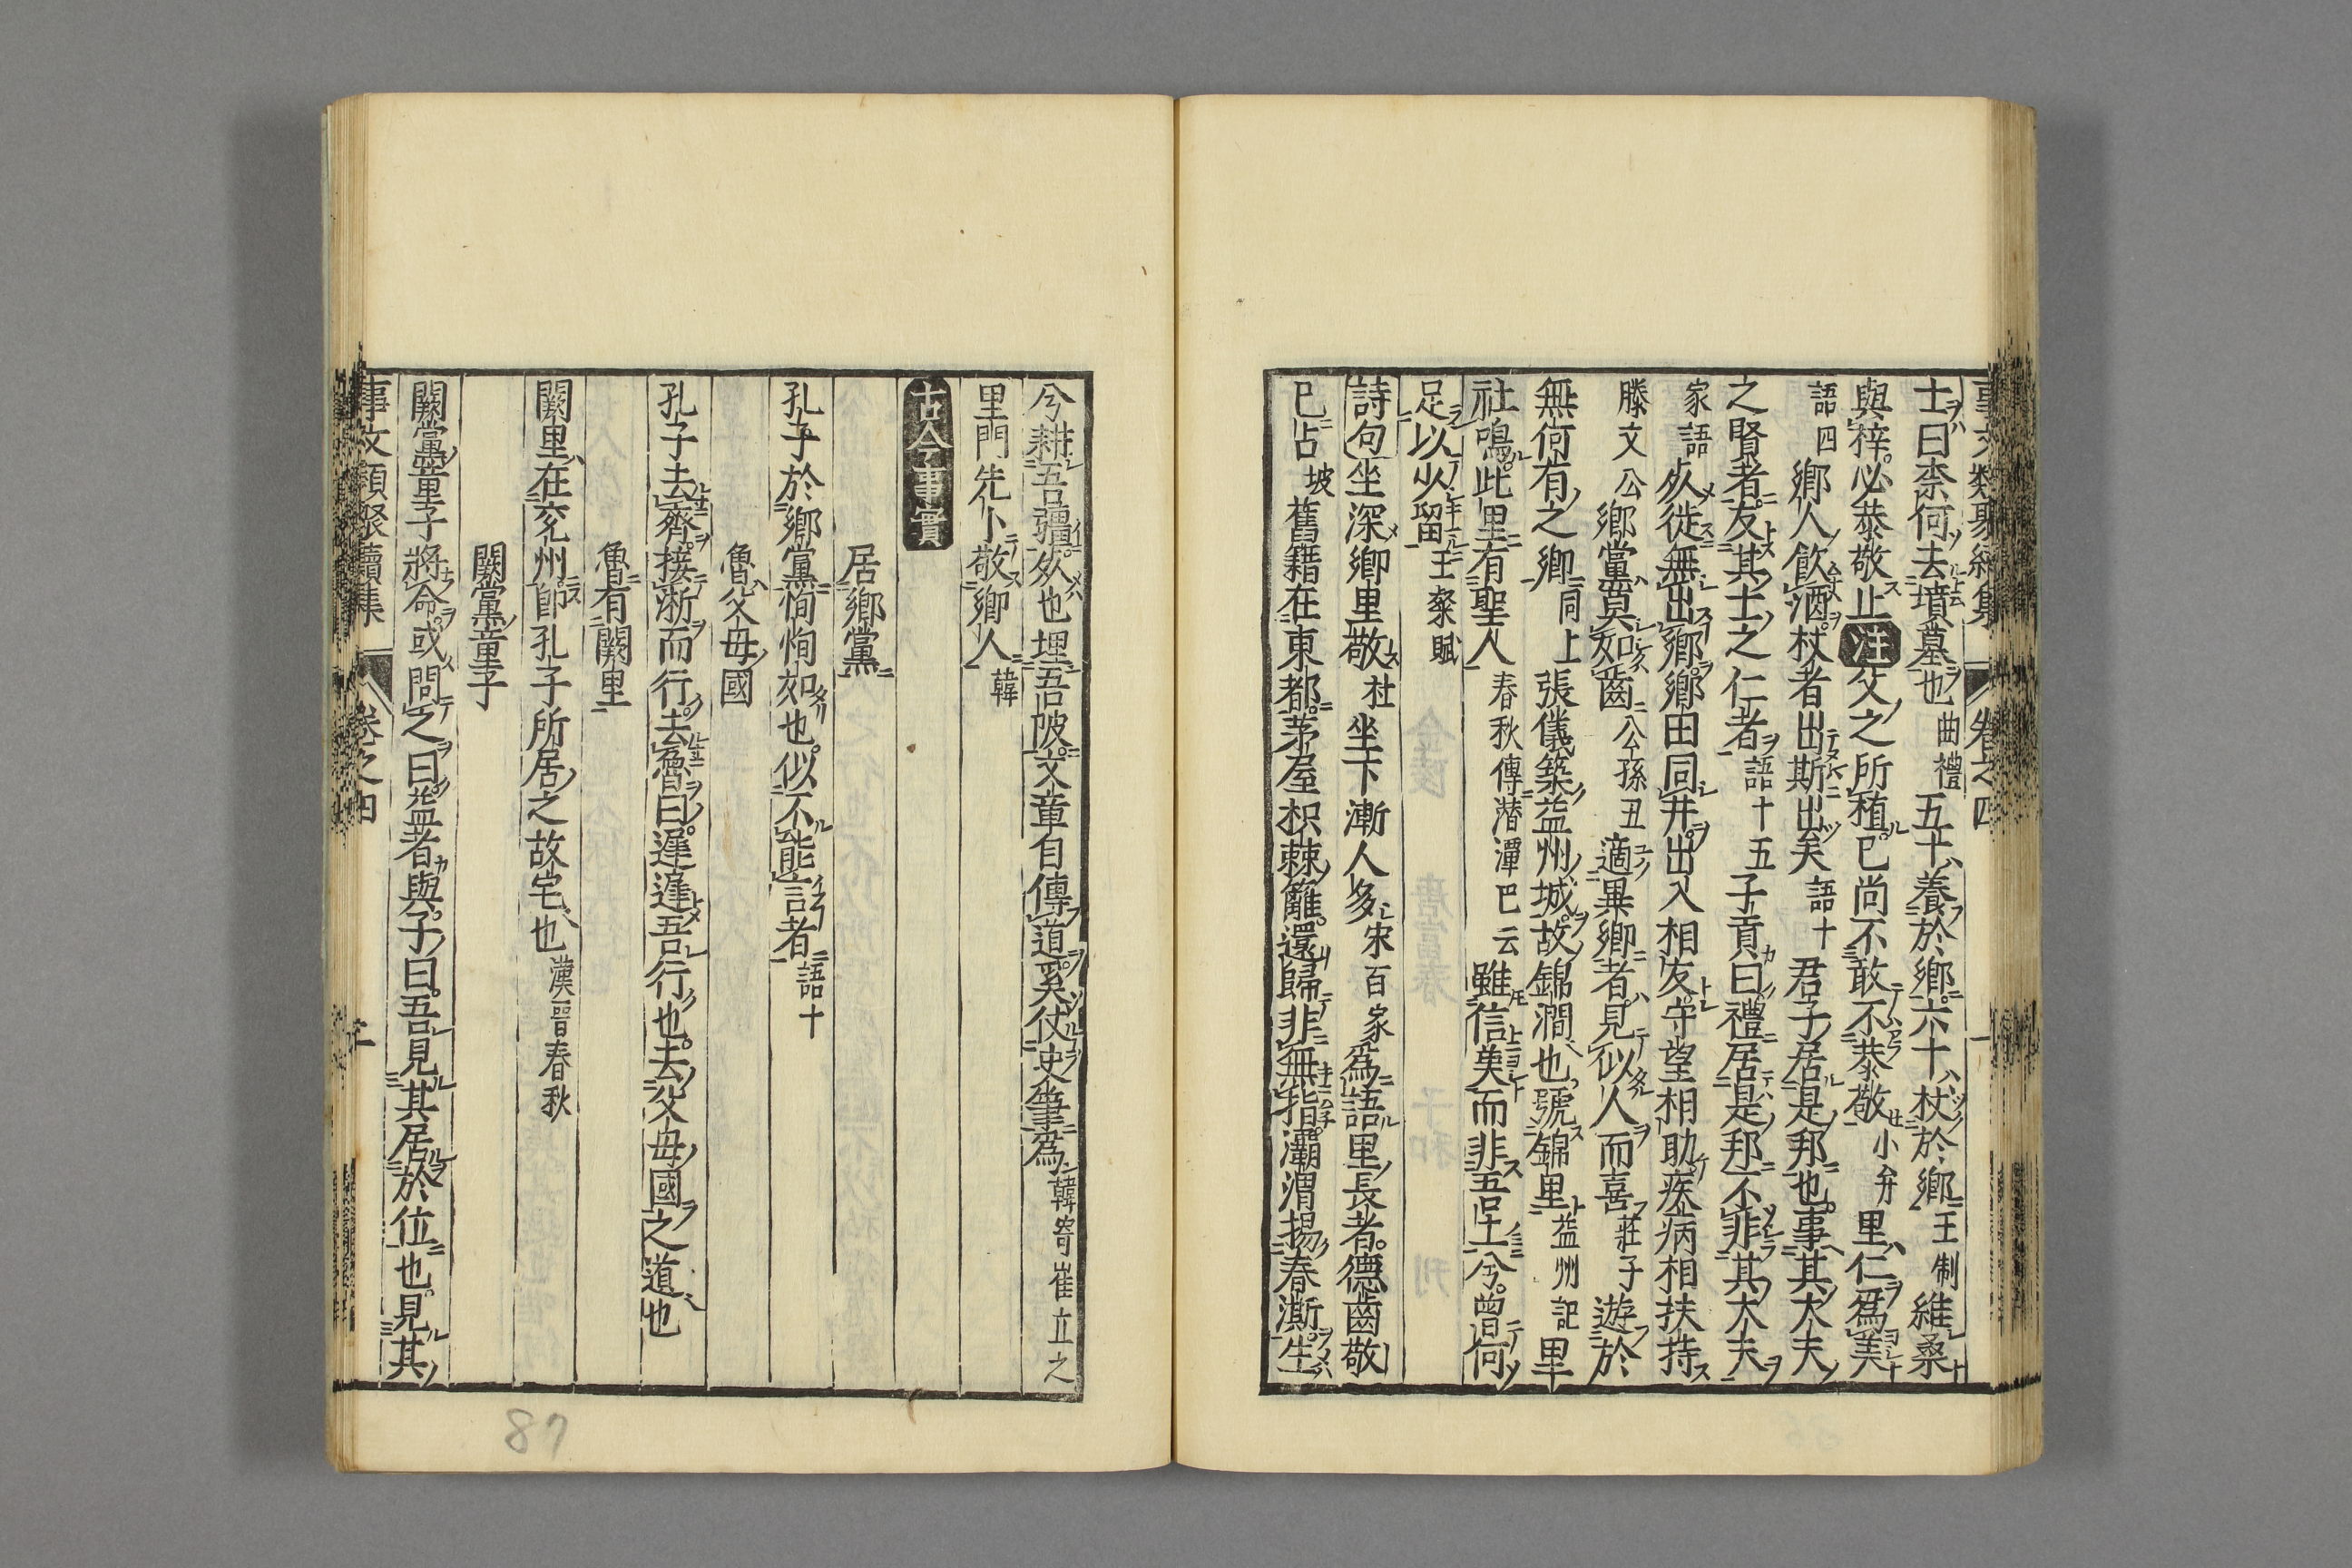 事文類聚續集 卷之四
士曰柰何去墳墓也 曲禮 五十養於鄉六十杖於鄉 王制 維桑
與梓必恭敬止 注 父之所植已尚不敢不恭敬 小弁 里仁爲美
語四 鄉人飲酒杖者出斯出矣 語十 君子居是邦也事其大夫
之賢者友其士之仁者 語十五 子貢曰禮居是邦不非其大夫
家語 死徙無出鄉鄉田同井出入相友守望相助疾病相扶持
滕文公 鄉黨莫如齒 公孫丑 適異鄉者見似人而喜 莊子 遊於
無何有之鄉 同上 張儀築益州城故錦澗也號錦里 益州記 里
社鳴此里有聖人 春秋傳潛潭巴云 雖信美而非吾土兮曾何
足以少留 王粲賦
詩句 坐深鄉里敬 杜 坐下漸人多 宋百家 爲語里長者德齒敬
已占 坡 舊籍在東都茅屋枳棘籬還歸非無指灞渭揚春澌生
兮耕吾疆死也埋吾陂文章自傳道奚仗史筆爲 韓寄崔立之
里門先卜敬鄉人 韓
古今事實
居鄉黨
孔子於鄉黨恂恂如也似不能言者 語十
魯父母國
孔子去齊接淅而行去魯曰遲遲吾行也去父母國之道也
魯有闕里
闕里在兖州卽孔子所居之故宅也 漢晉春秋
闕黨童子
闕黨童子將命或問之曰益者與子曰吾見其居於位也見其
事文類聚續集 卷之四 三
87